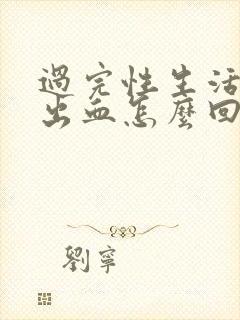 過完性生活
出血怎麼回
劉寧